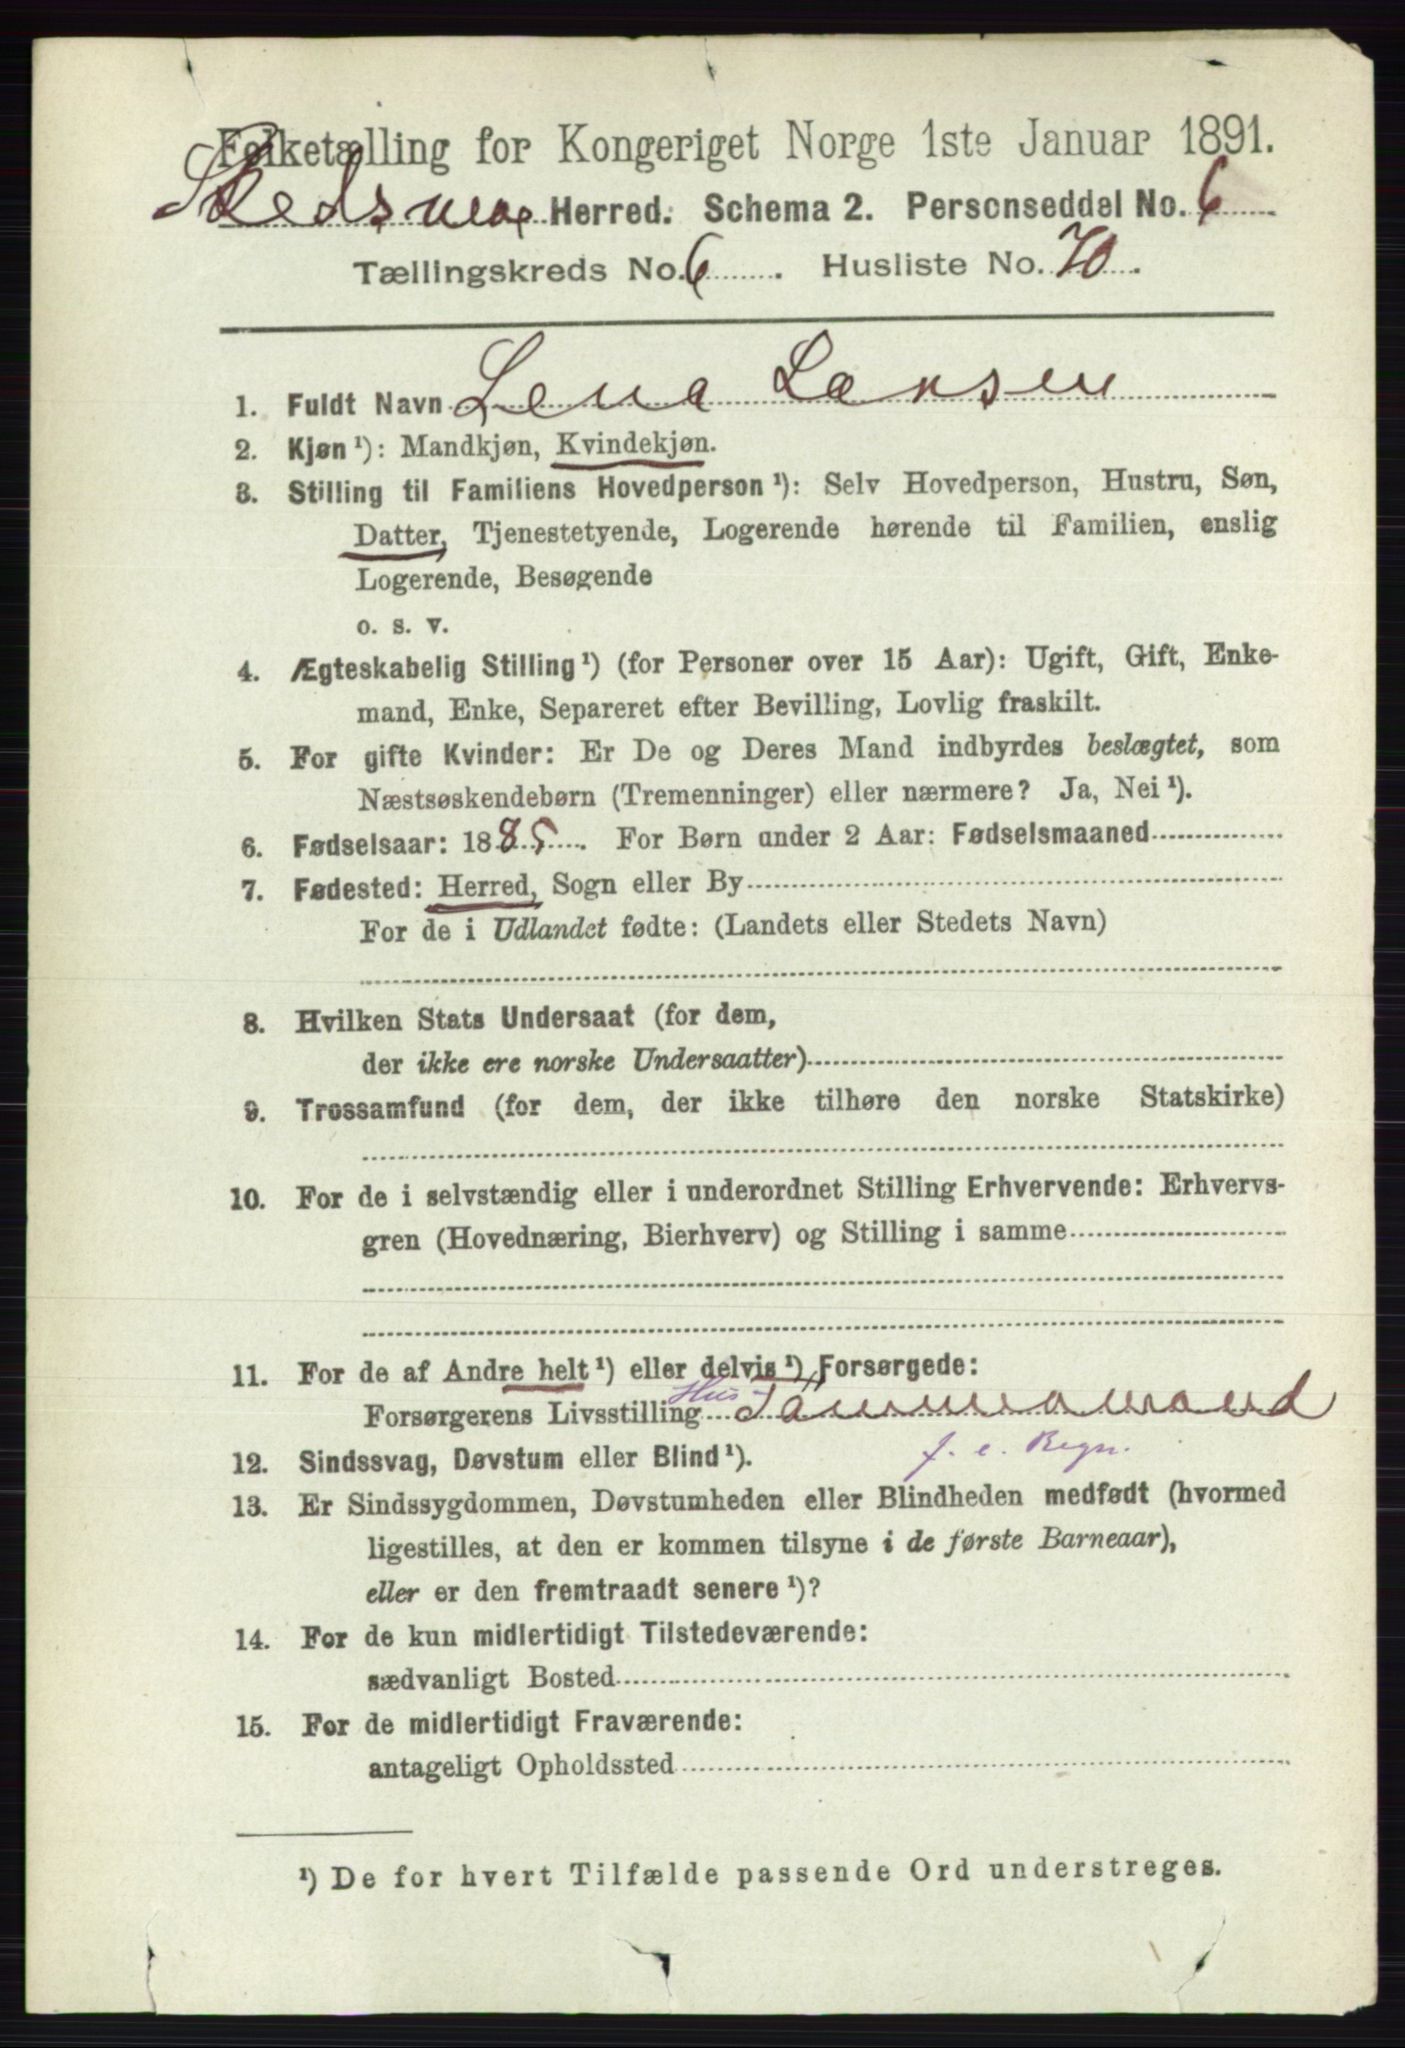 Folketælling for Kongeriget Norge 1ste Januar 1891.
Skedsmo Herred. Schema 2. Personseddel No. 6
Tællingskreds No. 6. Husliste No. 70.
1. Fuldt Navn Lena Larsen
2. Kjøn ¹): Mandkjøn, Kvindekjøn.
3. Stilling til Familiens Hovedperson ¹): Selv Hovedperson, Hustru, Søn,
Datter, Tjenestetyende, Logerende hørende til Familien, enslig
Logerende, Besøgende
o. s. v.
4. Ægteskabelig Stilling ¹) (for Personer over 15 Aar): Ugift, Gift, Enke-
mand, Enke, Separeret efter Bevilling, Lovlig fraskilt.
5. For gifte Kvinder: Er De og Deres Mand indbyrdes beslægtet, som
Næstsøskendebørn (Tremenninger) eller nærmere? Ja, Nei ¹).
6. Fødselsaar: 1885. For Børn under 2 Aar: Fødselsmaaned
7. Fødested: Herred, Sogn eller By
For de i Udlandet fødte: (Landets eller Stedets Navn)
8. Hvilken Stats Undersaat (for dem,
der ikke ere norske Undersaatter)
9. Trossamfund (for dem, der ikke tilhøre den norske Statskirke)
10. For de i selvstændig eller i underordnet Stilling Erhvervende: Erhvervs-
gren (Hovednæring, Bierhverv) og Stilling i samme
11. For de af Andre helt ¹) eller delvis ¹) Forsørgede:
Forsørgerens Livsstilling Hus-Tømmermand
f. e. Regn.
12. Sindssvag, Døvstum eller Blind ¹).
13. Er Sindssygdommen, Døvstumheden eller Blindheden medfødt (hvormed
ligestilles, at den er kommen tilsyne i de første Barneaar),
eller er den fremtraadt senere ¹)?
14. For de kun midlertidigt Tilstedeværende:
sædvanligt Bosted
15. For de midlertidigt Fraværende:
antageligt Opholdssted
¹) De for hvert Tilfælde passende Ord understreges.